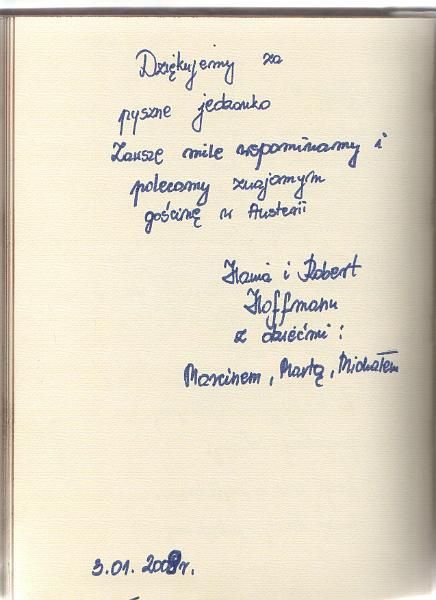 Dziękujemy za
pyszne jedzonko
Zawsze mile wspominamy i
polecamy znajomym
gościnę w Austerii
Hania i Robert
Hoffmann
z dziećmi:
Marcinem, Martą, Michałem
3.01.2009r.